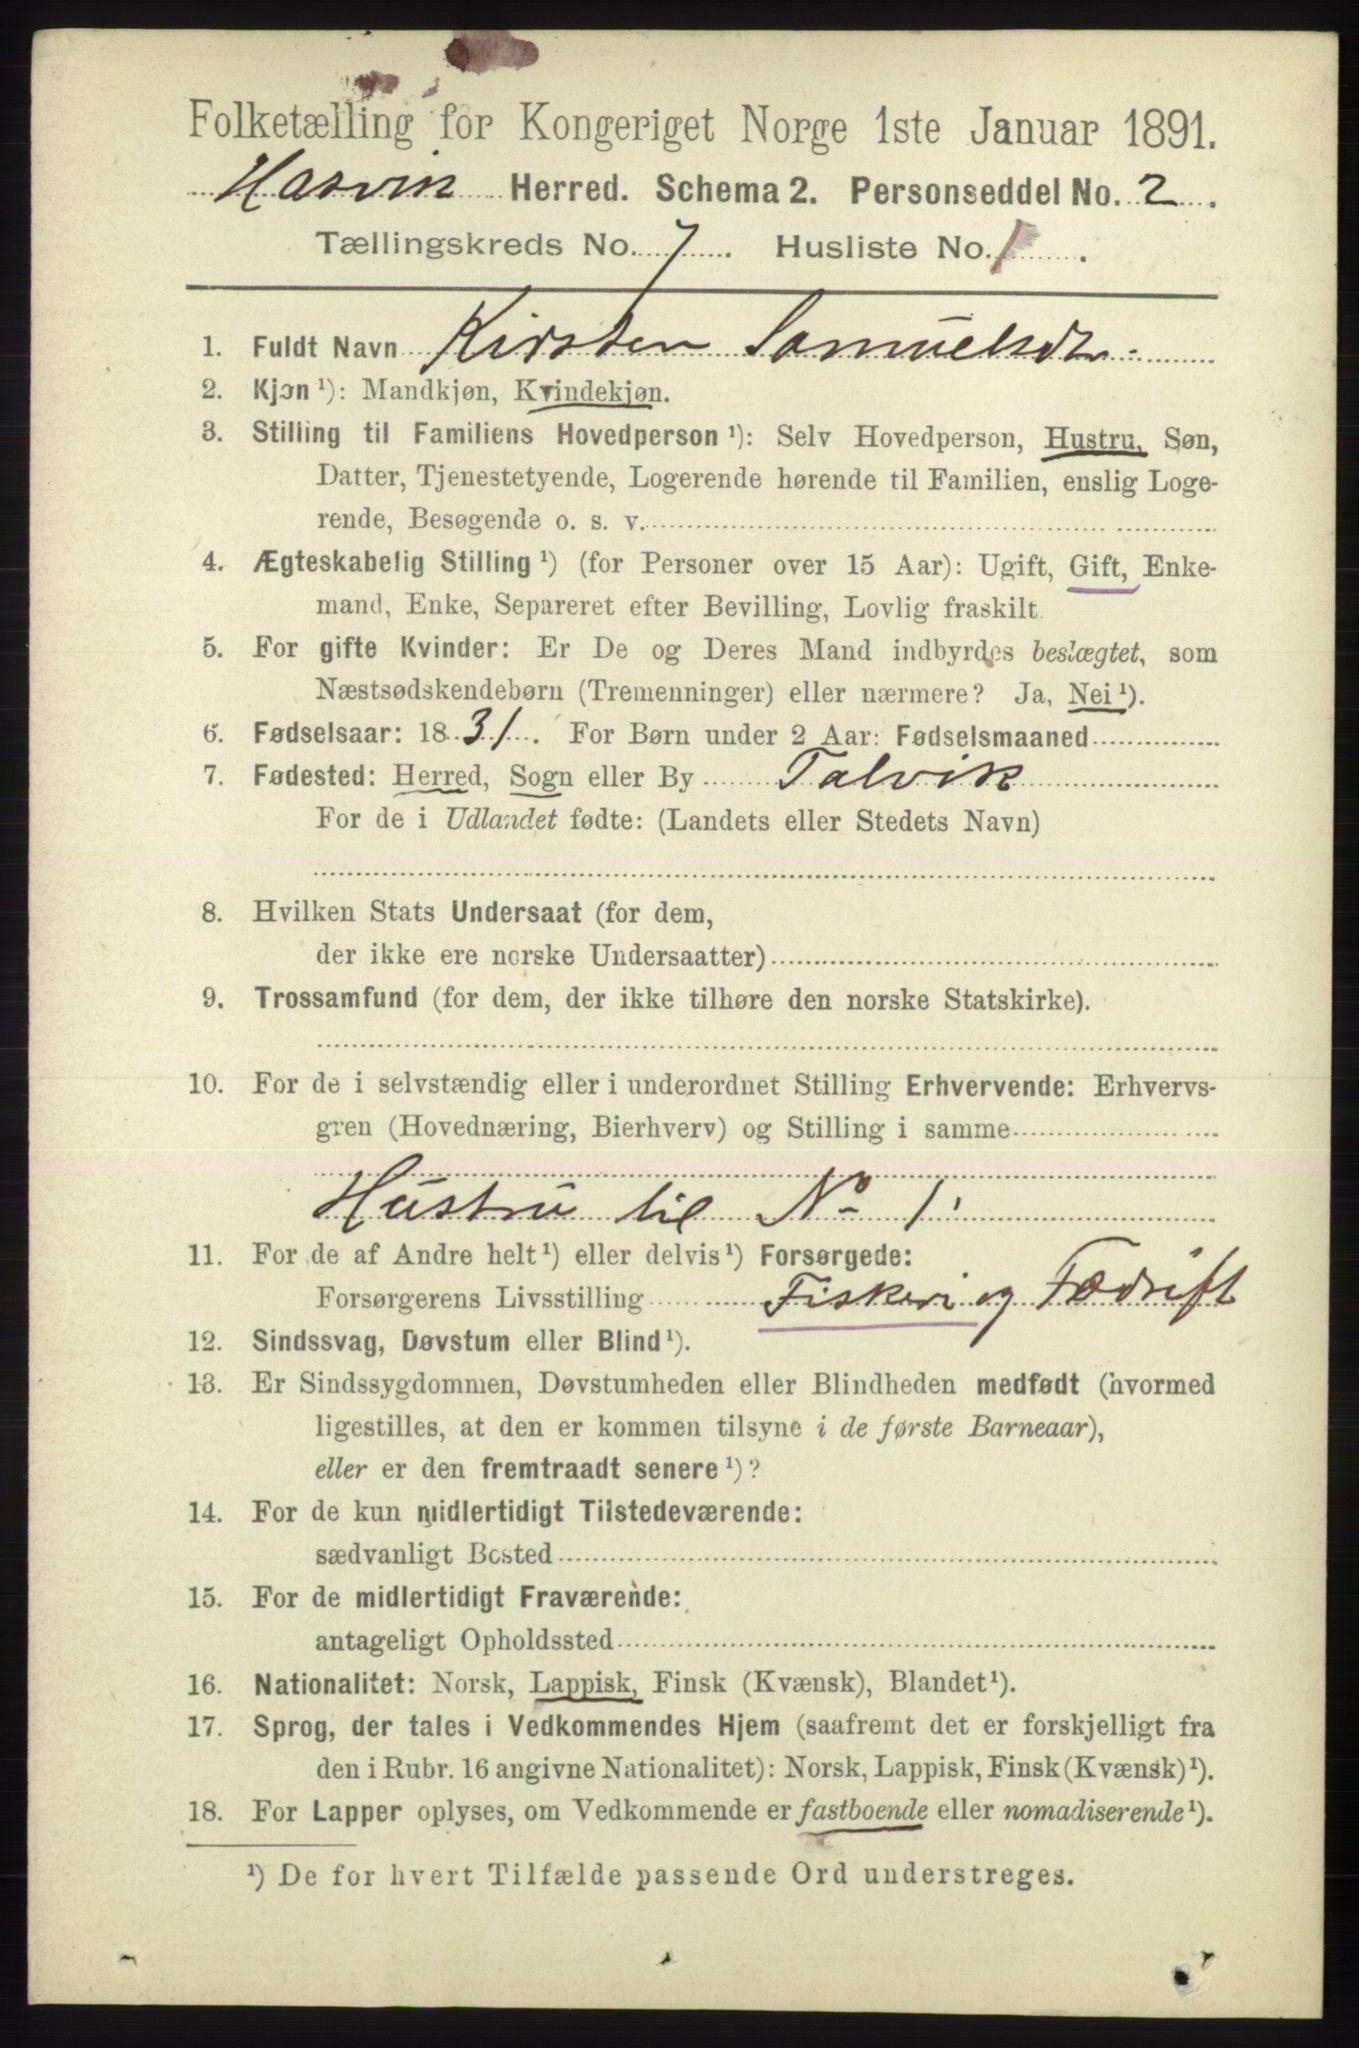 Folketælling for Kongeriget Norge 1ste Januar 1891.
Hasvik Herred. Schema 2. Personseddel No. 2.
Tællingskreds No. 7. Husliste No. 1.
1. Fuldt Navn Kirsten Samuelsdr.
2. Kjøn ¹): Mandkjøn, Kvindekjøn.
3. Stilling til Familiens Hovedperson ¹): Selv Hovedperson, Hustru, Søn,
Datter, Tjenestetyende, Logerende hørende til Familien, enslig Loge-
rende, Besøgende o. s. v.
4. Ægteskabelig Stilling ¹) (for Personer over 15 Aar): Ugift, Gift, Enke-
mand, Enke, Separeret efter Bevilling, Lovlig fraskilt.
5. For gifte Kvinder: Er De og Deres Mand indbyrdes beslægtet, som
Næstsødskendebørn (Tremenninger) eller nærmere? Ja, Nei ¹).
6. Fødselsaar: 1831. For Børn under 2 Aar: Fødselsmaaned
7. Fødested: Herred, Sogn eller By Talvik
For de i Udlandet fødte: (Landets eller Stedets Navn)
8. Hvilken Stats Undersaat (for dem,
der ikke ere norske Undersaatter)
9. Trossamfund (for dem, der ikke tilhøre den norske Statskirke).
10. For de i selvstændig eller i underordnet Stilling Erhvervende: Erhvervs-
gren (Hovednæring, Bierhverv) og Stilling i samme
Hustru til No 1.
11. For de af Andre helt ¹) eller delvis ¹) Forsørgede:
Forsørgerens Livsstilling Fiskeri og Fædrift
12. Sindssvag, Døvstum eller Blind ¹).
13. Er Sindssygdommen, Døvstumheden eller Blindheden medfødt (hvormed
ligestilles, at den er kommen tilsyne i de første Barneaar),
eller er den fremtraadt senere ¹)?
14. For de kun midlertidigt Tilstedeværende:
sædvanligt Bosted
15. For de midlertidigt Fraværende:
antageligt Opholdssted
16. Nationalitet: Norsk, Lappisk, Finsk (Kvænsk), Blandet ¹).
17. Sprog, der tales i Vedkommendes Hjem (saafremt det er forskjelligt fra
den i Rubr. 16 angivne Nationalitet): Norsk, Lappisk, Finsk (Kvænsk) ¹).
18. For Lapper oplyses, om Vedkommende er fastboende eller nomadiserende ¹).
¹) De for hvert Tilfælde passende Ord understreges.